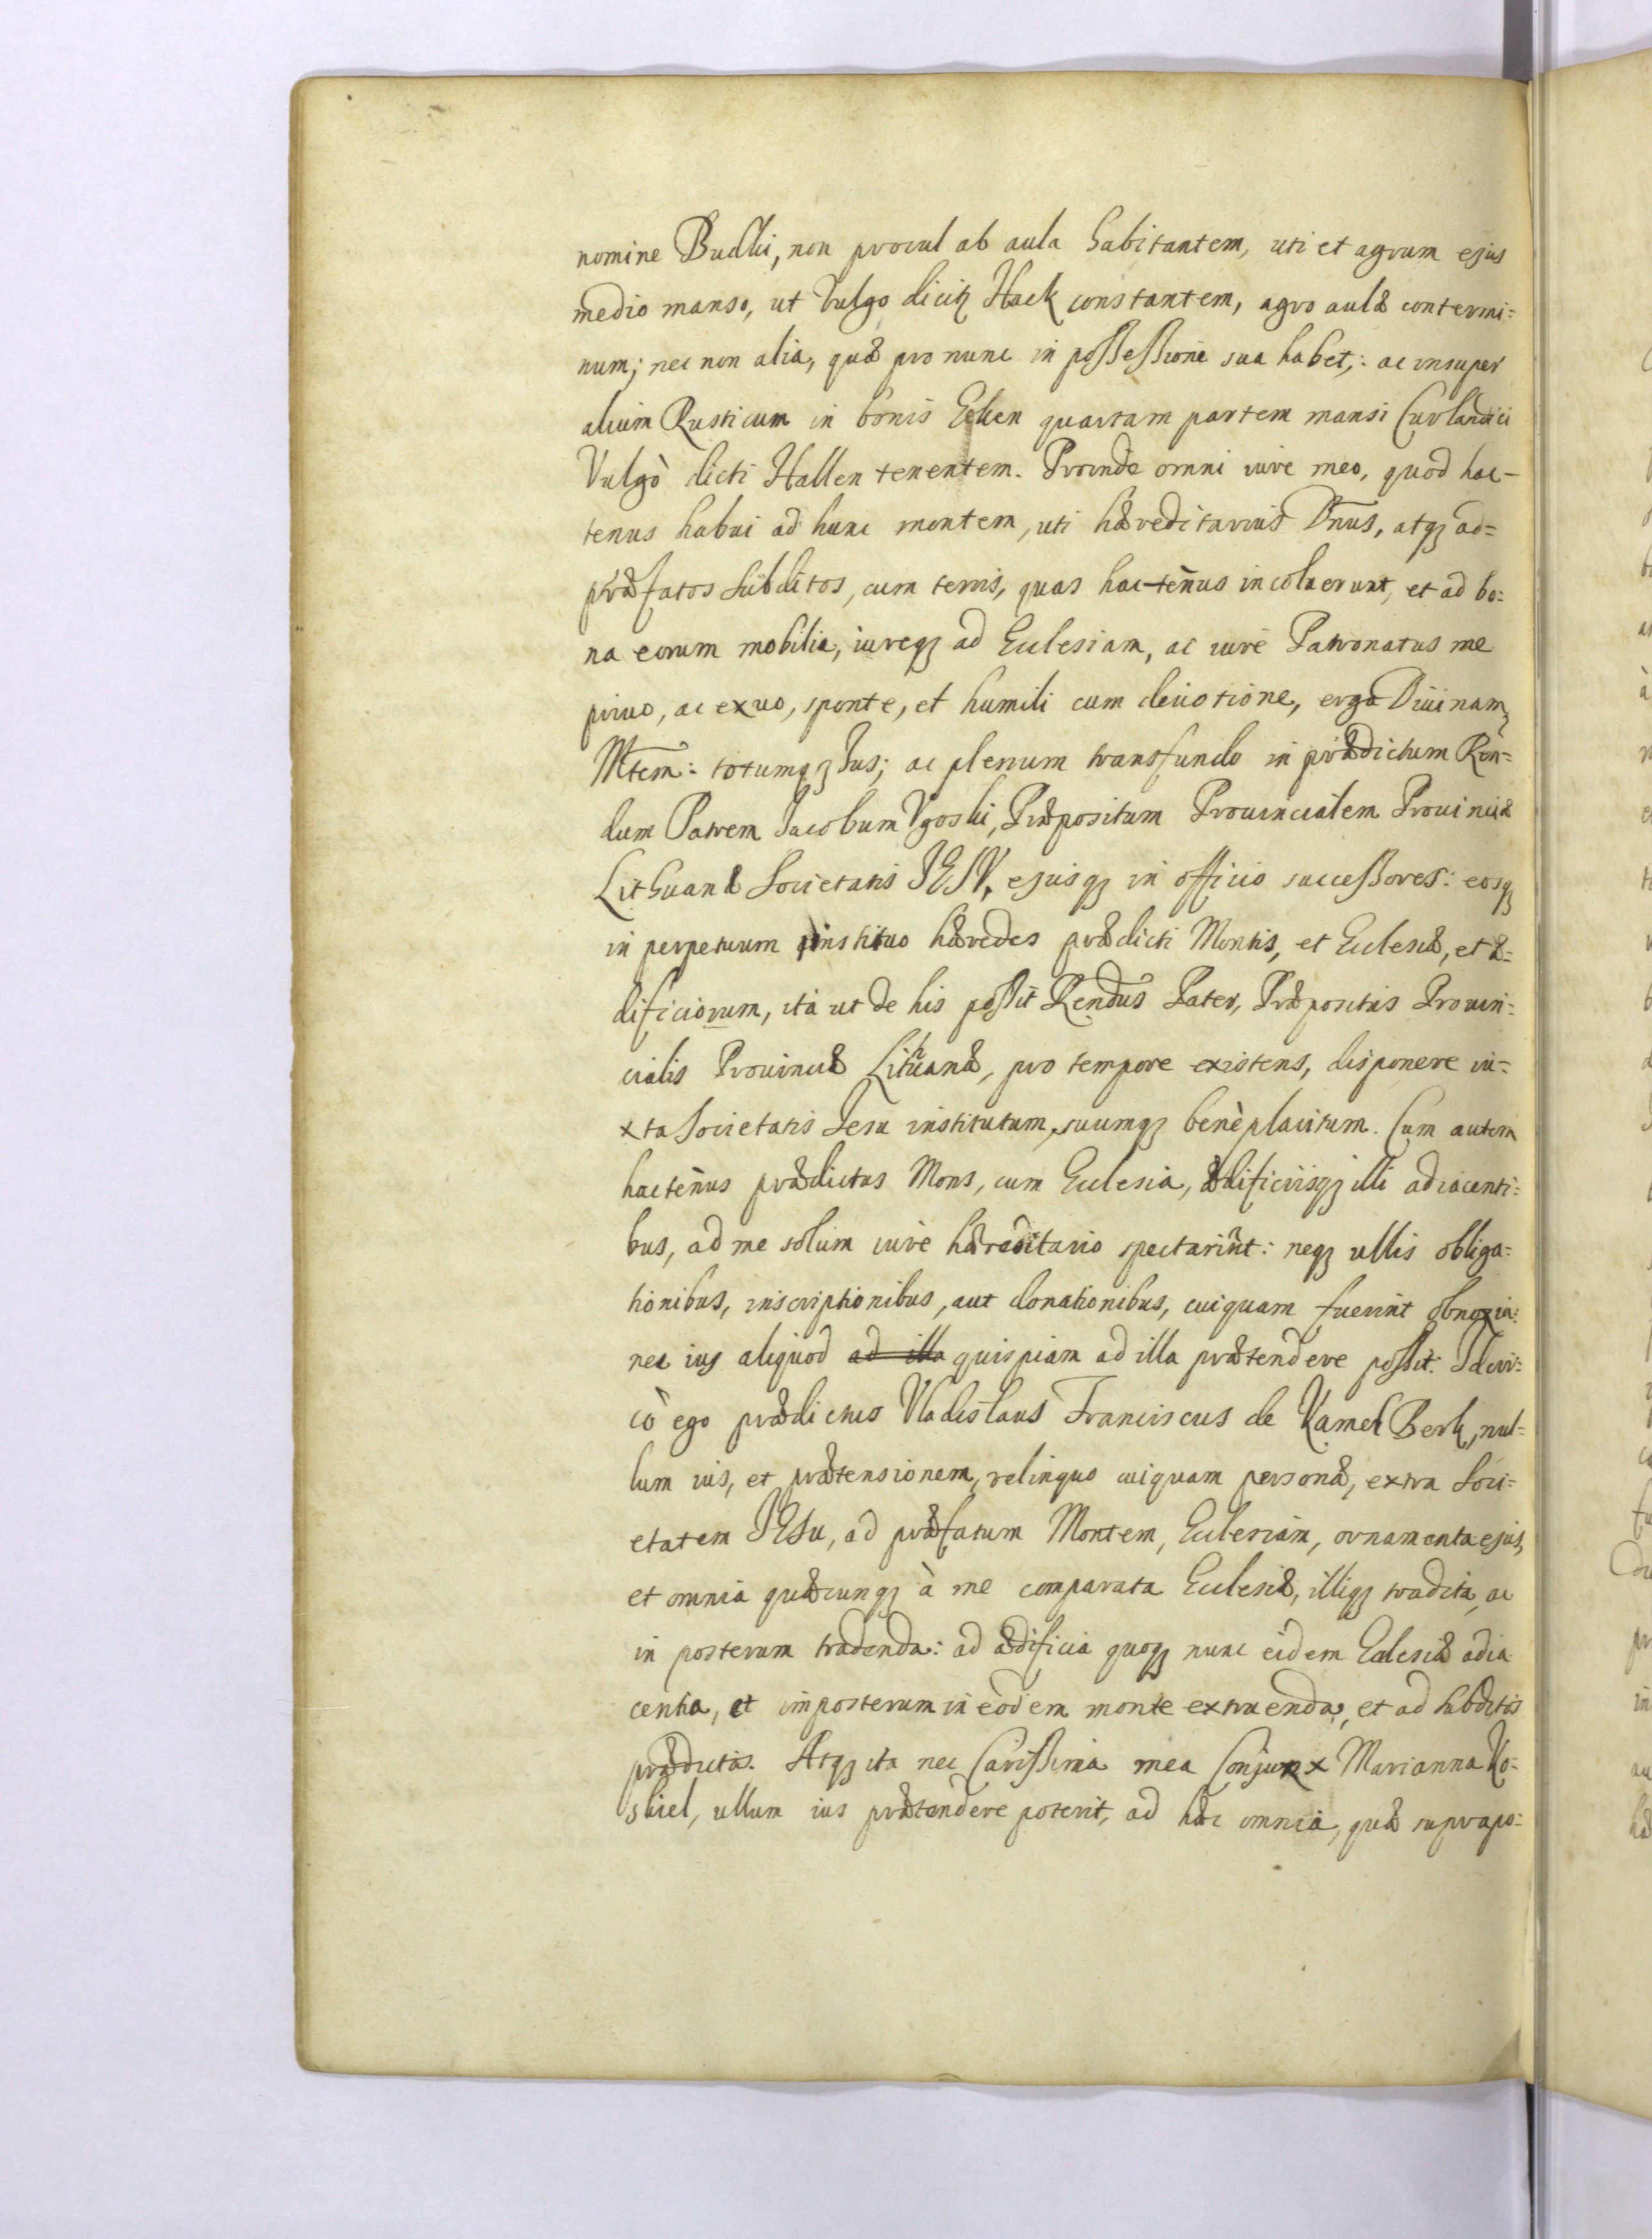 nomine Budki, non procul ab aula habitantem, uti et agrum ejus
medio manso, ut vulgo dicitz Hack constantem, agro aulæ contermi=
num; nec non alia, quæ pro nunc in possessione sua habet,: ac insuper
alium Rusticum in bonis Eeken quartam partem mansi Curlandici
Vulgò dicti Hallen tenentem. Proinde omni iure meo, quod hac-
tenus habui ad hunc montem, uti hæreditarius Dnus, atqz ad=
præfatos subditos, cum terris, quas hactenus incoluerunt, et ad bo=
na eorum mobilia, iureqz ad Eclesiam, ac iure Patronatus me
priuo, ac exuo, sponte, et humili cum deuotione, erga Diuinam
Mtem: totumqz Jus; ac plenum transfundo in prædictum Ren=
dum Patrem Jacobum Vgoski, Præpositum Prouincialem Prouinciæ
Lithuanæ Societatis JESV, ejusqz in officio successores: eosqz
in perpetuum instituo hæredes prædicti Montis, et Eclesiæ, et æ=
dificiorum, ità ut de his possit Rendus Pater, Præpositus Prouin=
cialis Prouinciæ Lithuanæ, pro tempore existens, disponere iu=
xta Societatis Jesu institutum, suumqz benè placitum. Cum autem
hactenus prædictus Mons, cum Eclesia, ædificiisqz illi adiacenti=
bus, ad me solum iure hæreditario spectarint: neqz ullis obliga=
tionibus, inscriptionibus, aut donationibus, cuiquam fuerint obnoxia:
nec ius aliquod ad illa quispiam ad illa prætendere possit. Idcir=
cò ego prædictus Vladislaus Franciscus de Kamel Berk, nul=
lum ius, et prætensionem, relinquo cuiquam personæ, extra Soci=
etatem JESu, ad præfatum Montem, Eclesiam, ornamenta ejus,
et omnia quæcunqz à me comparata Eclesiæ, illiqz tradita, ac
in posterum tradenda: ad ædificia quoqz nunc eidem Eclesiæ adia
centia, et imposterum in eodem monte extruenda, et ad subditos
prædictos. Atqz ita nec Carissima mea Conjunx Marianna Ko=
skiel, ullum ius prætendere poterit, ad hæc omnia, quæ suprapo=